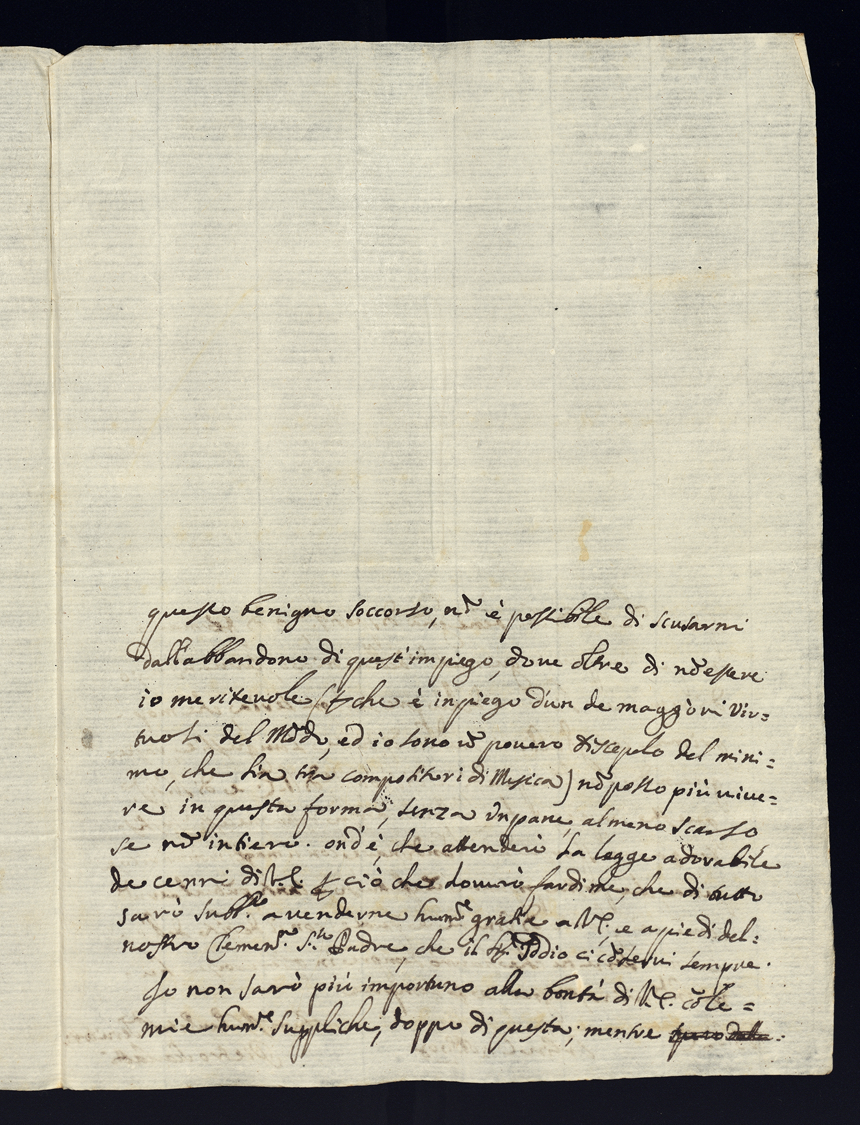 questo benigno soccorso, nō è possibile di scusarmi
dall'abbandono di quest'impiego, dove oltre di nō essere
io meritevole (ꝑche è inpiego d'un de maggiori Vir=
tuosi del Mōdo, ed io sono ū povero discepolo del mini=
mo, che sia tra compositori di Musica) nō posso più vive=
re in questa forma, senza ūn pane, almeno scarso
se nō intiero. ond'è, che attenderò la legge adorabile
de cenni di V.E. ꝑ ciò che dovurò far di me, che di tutto
sarò subb.º a renderne hum.e gratie a V.E. e a piedi del=
nostro Clemen.º S.to Padre, che il Sig. Iddio ci cōservi sempre.
Io non sarò più importuno alla bontà di V.E. cō le=
mie hum.e suppliche, doppo di questa; mentre